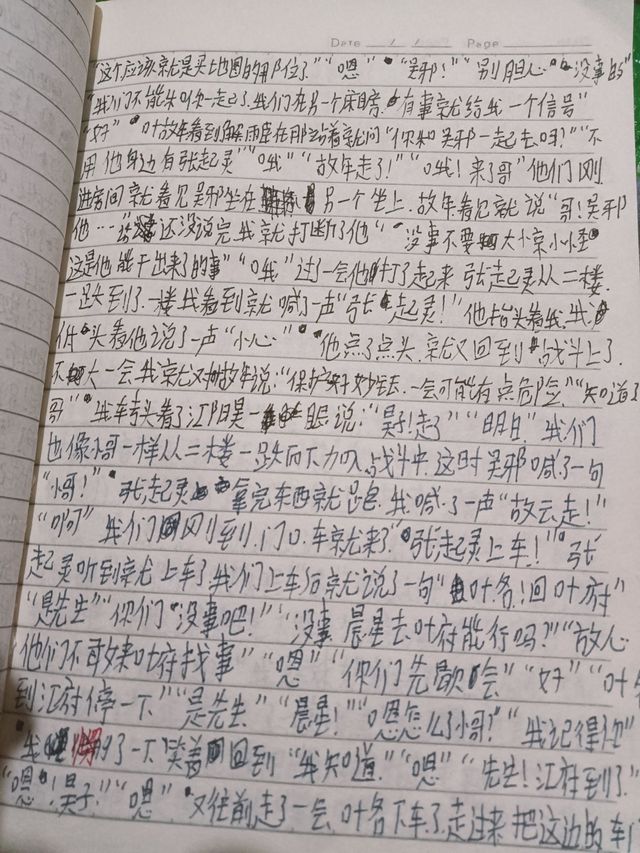 Date / / Page
"这个应该就是买地图的那位了""嗯""吴邪!""别胆心 没事的"
"我们不能和你一起了.我们在另一个房.有事就给我一个信号"
"好" 叶故年看到解雨臣在那站着就问"你和吴邪一起去吗?""不
用他身边有张起灵""哦""故年走了!""哦!来了哥"他们刚
进房间就看见吴邪坐在 另一个坐上.故年看见就说"哥!吴邪
他…" 还没说完我就打断了他"没事不要大小惊小怪
这是他能干出来了的事""哦"过了一会他们打了起来 张起灵从二楼
一跃到了一楼我看到就喊了一声"张起灵!"他抬头看我.我
低头看他说了一声"小心" 他点了点头.就又回到战斗上了.
不大一会我就又和故年说:"保护好 一会可能有点危险""知道了
哥" 我转头看了江阳昊一眼说:"昊子!走了""明白"我们
也像小哥一样从二楼一跃而下加入战斗中.这时吴邪喊了一句
"小哥!" 张起灵 拿完东西就跑.我喊了一声"故云走!"
"啊" 我们刚到门口.车就来了"张起灵上车!"张
起灵听到就上车了.我们上车后就说了一句"叶名!回叶府"
"是先生""你们没事吧!""没事 晨星去叶府能行吗?""放心
他们不敢来叶府找事""嗯""你们先歇会""好""叶名
到江府停一下""是先生""晨星!""嗯怎么了小哥?""我记得你"
我 了一下笑着回到"我知道""嗯""先生!江府到了"
"嗯!昊子""嗯" 又往前走了一会.叶名下车了.走过来把这边的车门